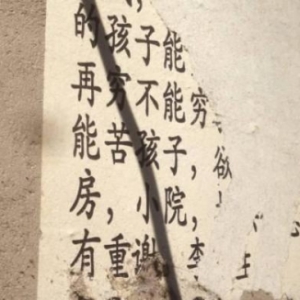 的孩子能
再穷不能穷
能苦孩子，欲
房，小院，
有重谢 李